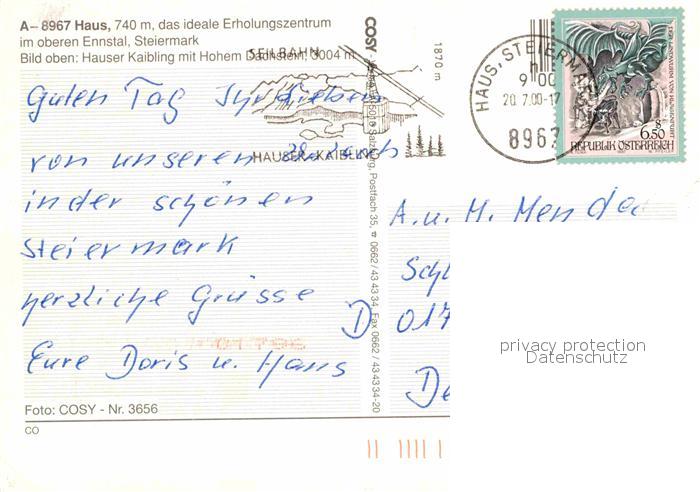 A-8967 Haus, 740 m, das ideale Erholungszentrum
im oberen Ennstal, Steiermark
Bild oben: Hauser Kaibling mit Hohem Dachstein, 3004 m
SEILBAHN
1870 m
HAUSER-KAIBLING
Guten Tag Ihr Lieben
von unserem Urlaub
in der schönen
Steiermark
herzliche Grüsse
Eure Doris u. Hans
Foto: COSY - Nr. 3656
CO
COSY - 5010 Salzburg, Postfach 35, ☎ 0662 / 43 43 34, Fax 0662 / 43 43 34-20
HAUS, STEIERMARK
9 00
20.7.00-17
8967
S
6.50
REPUBLIK ÖSTERREICH
A. u. H.
D 017
privacy protection
Datenschutz